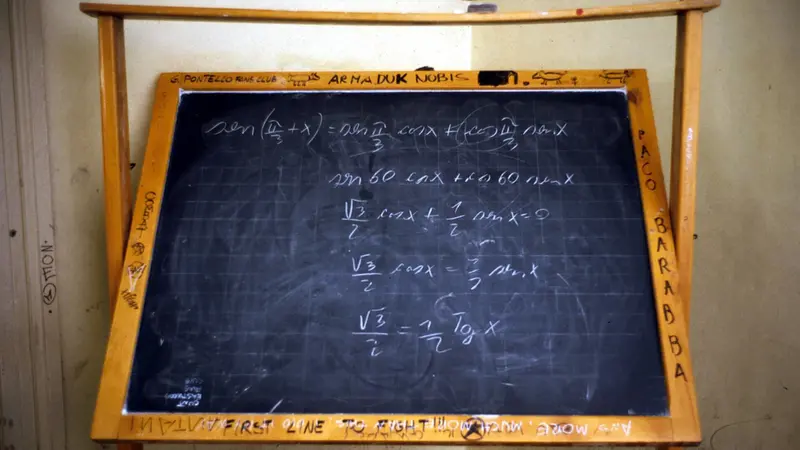 G. PONTELLO FANS CLUB ARMADUK NOBIS
sen(π/3 + x) = sen π/3 cosx + cos π/3 senx
sen 60 cosx + cos 60 senx
√3/2 cosx + 1/2 senx = 0
√3/2 cosx = 1/2 senx
√3/2 = 1/2 Tg x
PACO BARABBA
FIRST LINE TO FIGHT!!
AND MORE, MUCH MORE
TION.